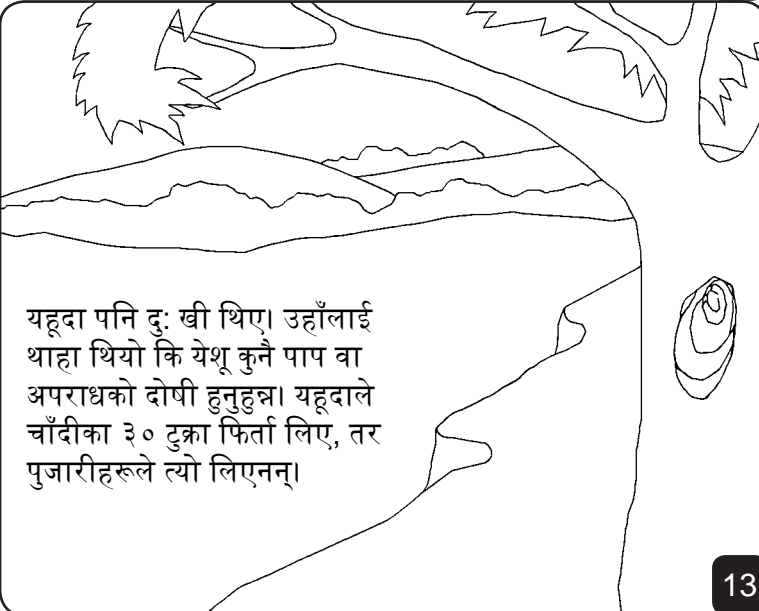 यहूदा पनि दु: खी थिए। उहाँलाई
थाहा थियो कि येशू कुनै पाप वा
अपराधको दोषी हुनुहुन्न। यहूदाले
चाँदीका ३० टुक्रा फिर्ता लिए, तर
पुजारीहरूले त्यो लिएनन्।
13